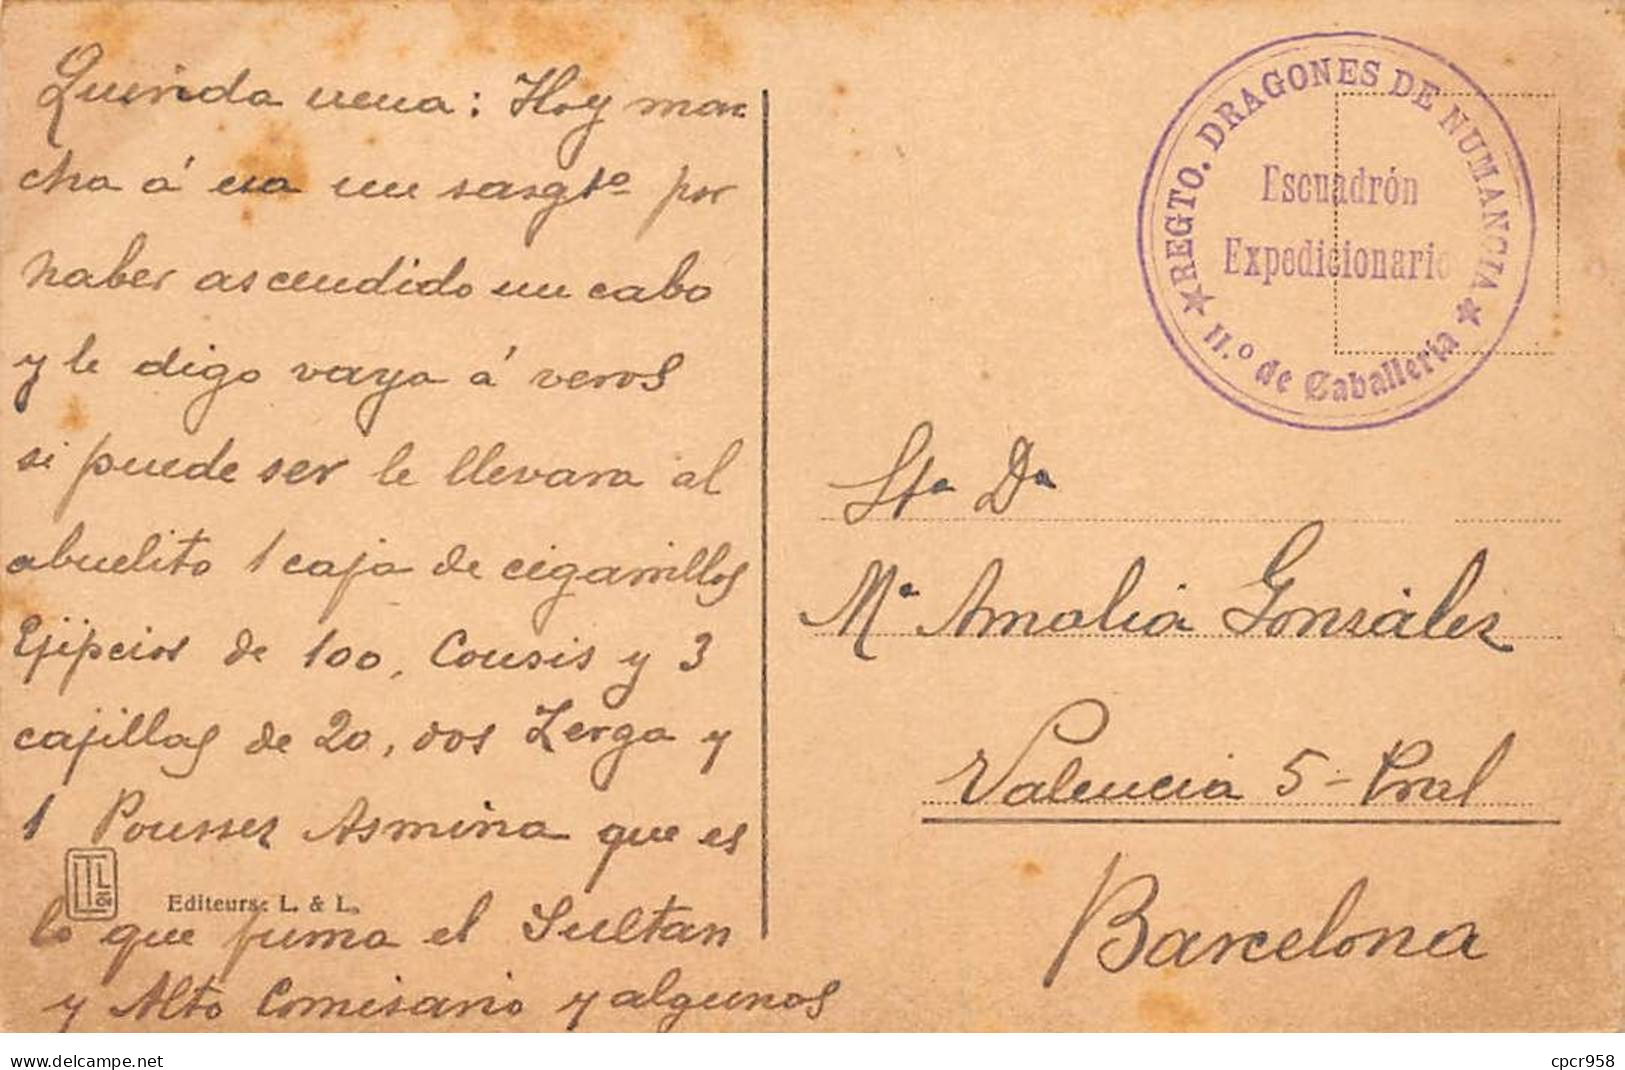 Querida nena: Hoy mar
cha á esa un sasgto por
haber ascendido un cabo
y le digo vaya á veros
si puede ser le llevara al
abuelito 1 caja de cigarrillos
Ejipcios de 100, Cousis y 3
cajillas de 20, dos Zerga y
1 Pousses Asmina que es
lo que fuma el Sultan
y Alto Comisario y algunos
Editeurs: L. & L.
REGTO. DRAGONES DE NUMANCIA
Escuadrón
Expedicionario
11.º de Caballería
Sta Da
Ma Amalia Gonzàlez
Valencia 5 - Pral
Barcelona
www.delcampe.net
cpcr958